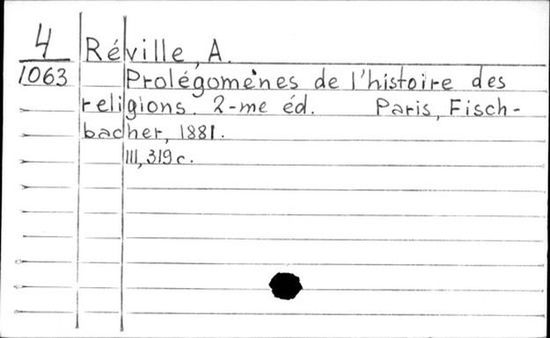 4
1063
Réville, A.
Prolégomènes de l'histoire des
religions. 2-me éd. Paris, Fisch-
bacher, 1881.
III, 319 c.